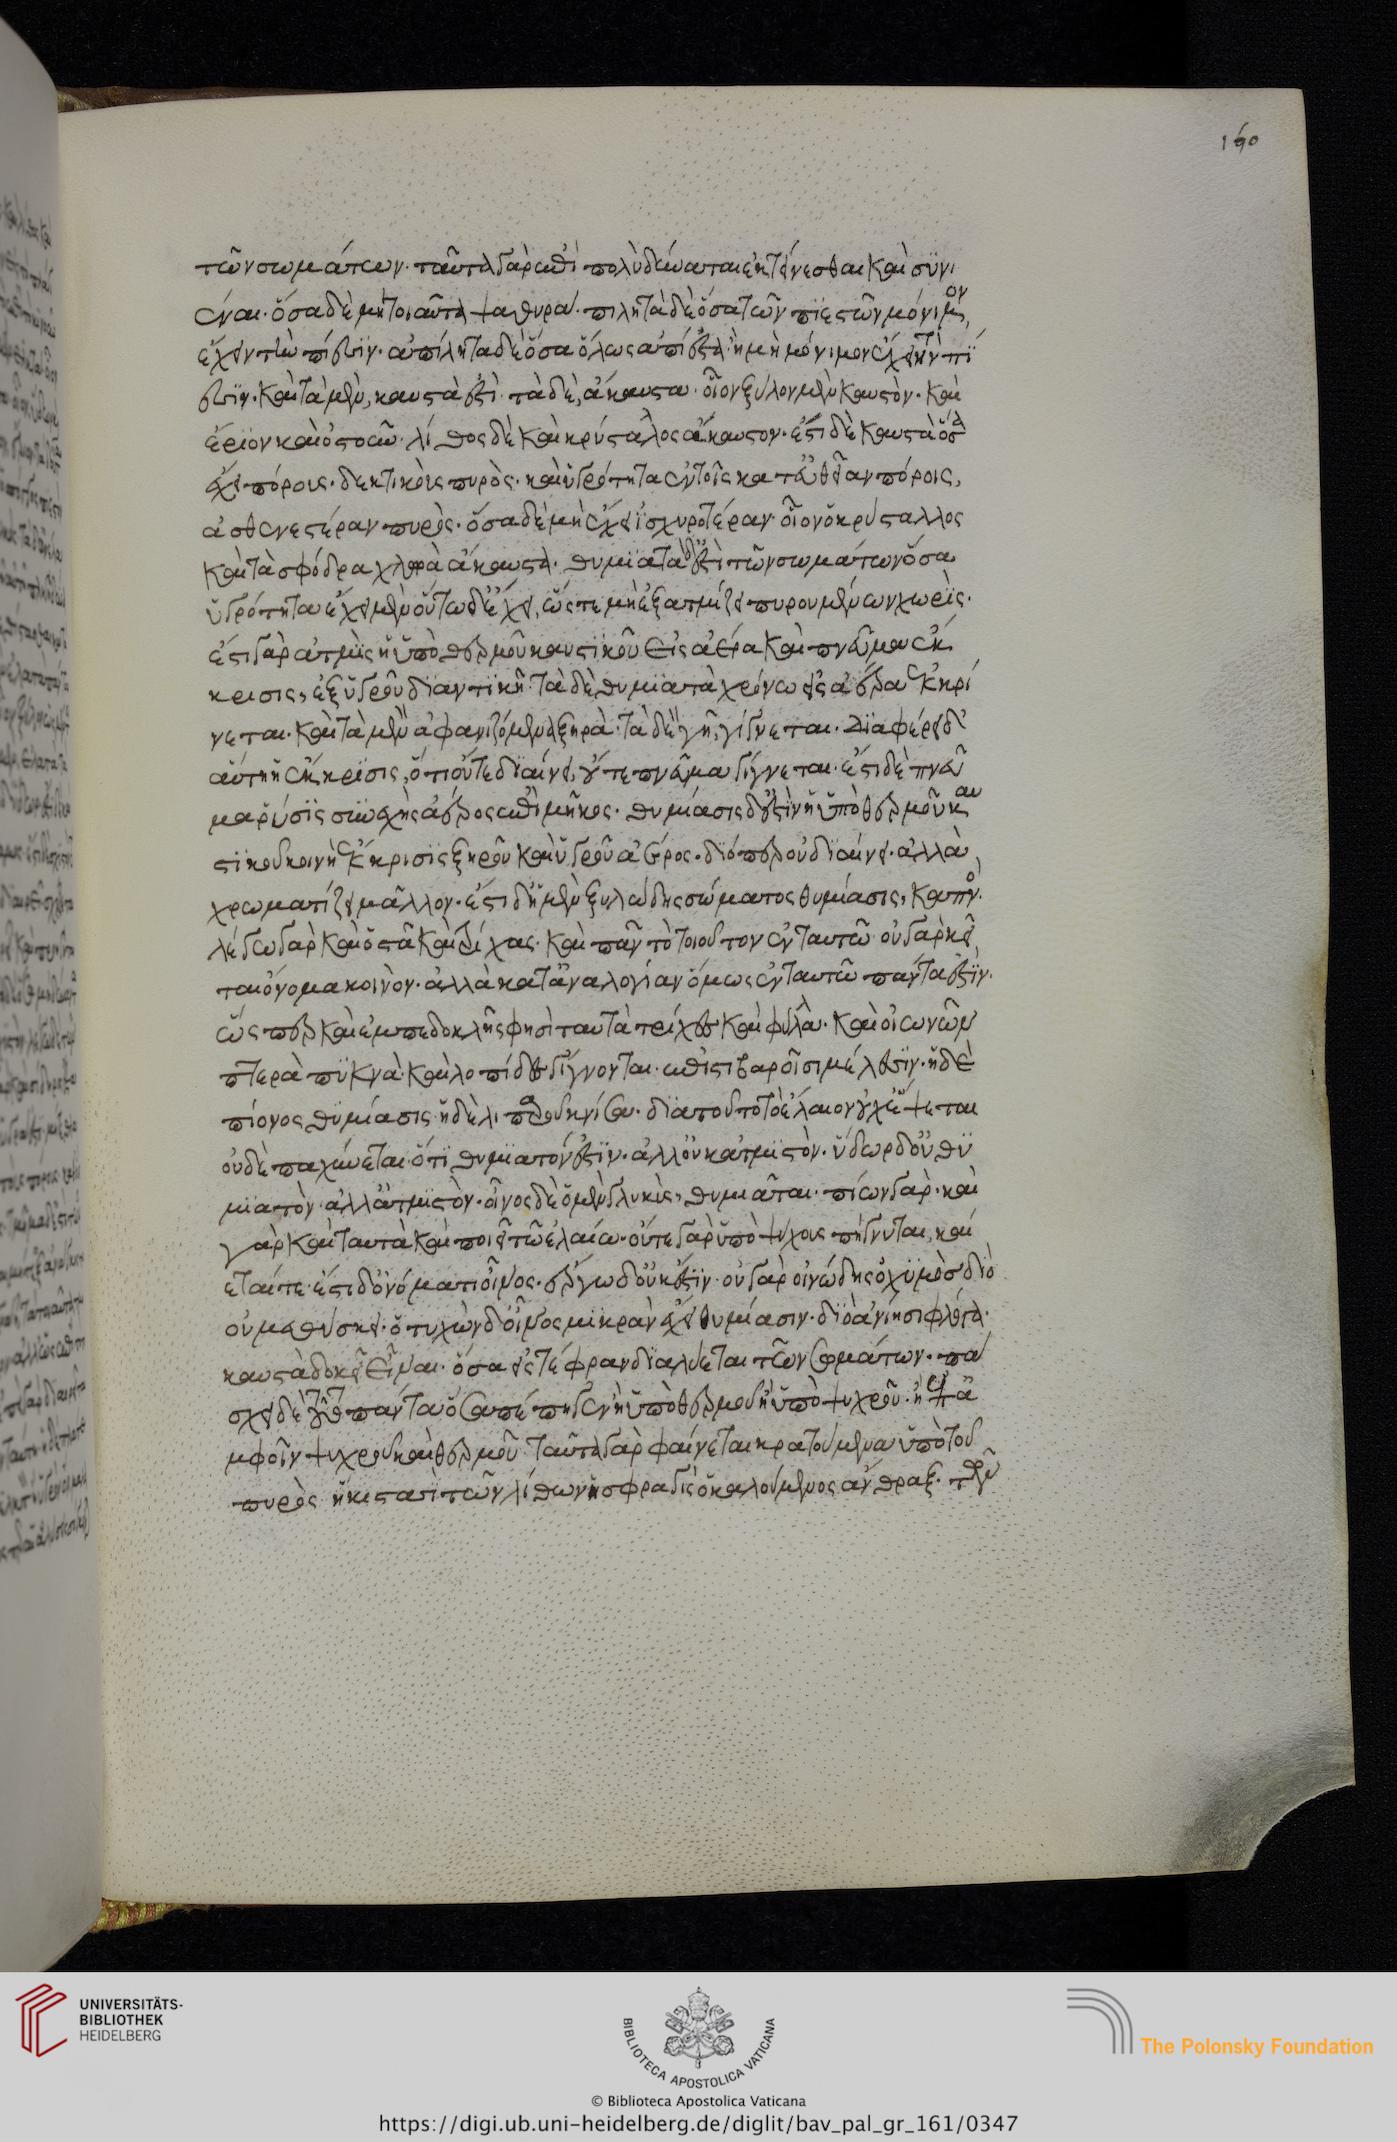 160
τῶν σωμάτων· ταῦτα γὰρ ἐπὶ πολὺ δύναται ἐκτείνεσθαι καὶ συνι
έναι· ὅσα δὲ μὴ τοιαῦτα ψαθυρά· πιλητὰ δὲ ὅσα τῶν πιεστῶν μόνιμον
ἔχει τὴν πίεσιν· ἀπίλητα δὲ ὅσα ὅλως ἀπίεστα ἢ μὴ μόνιμον ἔχει τὴν πί
εσιν· καὶ τὰ μὲν, καυστὰ ἐστὶ· τὰ δὲ, ἄκαυστα· οἷον ξύλον μὲν καυστὸν· καὶ
ἔριον καὶ ὀστοῦν· λίθος δὲ καὶ κρύσταλος ἄκαυστον· ἔστι δὲ καυστὰ ὅσα
ἔχει πόρους· δεκτικοὺς πυρὸς· καὶ ὑγρότητα ἐν τοῖς κατ' εὐθεῖαν πόροις,
ἀσθενεστέραν πυρὸς· ὅσα δὲ μὴ ἔχει ἰσχυροτέραν· οἷον ὁ κρύσταλλος
καὶ τὰ σφόδρα χλωρὰ ἄκαυστα· θυμιατὰ δ' ἐστὶ τῶν σωμάτων ὅσα
ὑγρότητα ἔχει μὲν οὕτω δὲ ἔχει, ὥστε μὴ ἐξατμίζειν πυρουμένων χωρὶς·
ἔστι γὰρ ἀτμὶς ἡ ὑπὸ θερμοῦ καυστικοῦ εἰς ἀέρα καὶ πνεῦμα ἔκ
κρισις, ἐξ ὑγροῦ διαντικὴ· τὰ δὲ θυμιατὰ χρόνω εἰς ἀέρα ἐκκρί
νεται· καὶ τὰ μὲν ἀφανιζόμενα ξηρὰ· τὰ δὲ γῆ, γίγνεται· διαφέρει δ'
αὕτη ἡ ἔκκρισις, ὅτι οὔτε διαίνει, οὔτε πνεῦμα γίγνεται· ἔστι δὲ πνεῦ
μα ῥύσις συνεχὴς ἀέρος ἐπὶ μῆκος· θυμίασις δ' ἐστὶν ἡ ὑπὸ θερμοῦ καυ
στικοῦ κοινὴ ἔκκρισις ξηροῦ καὶ ὑγροῦ ἀθρόος· διόπερ οὐ διαίνει· ἀλλὰ
χρωματίζει μᾶλλον· ἔστι δ' ἡ μὲν ξυλώδης σώματος θυμίασις, καπνός·
λέγω γὰρ καὶ ὀστᾶ καὶ τρίχας· καὶ πᾶν τὸ τοιοῦτον ἐν ταυτῶ· οὐ γὰρ κεῖ
ται ὄνομα κοινὸν· ἀλλὰ κατ' ἀναλογίαν ὅμως ἐν ταυτῶ πάντα ἐστὶν·
ὥσπερ καὶ ἐμπεδοκλῆς φησὶ ταυτὰ τρίχες καὶ φύλλα· καὶ οἰωνῶν
πτερὰ πυκνὰ· καὶ λοπίδες γίγνονται· ἐπὶ στιβαροῖσι μέλεσιν· ἡ δὲ
πίονος θυμίασις· ἡ δὲ λιπαροῦ κνίσα· διὰ τοῦτο τὸ ἔλαιον οὐχ ἕψεται
οὐδὲ παχύνεται· ὅτι θυμιατόν ἐστιν· ἀλλ' οὐκ ἀτμιστὸν· ὕδωρ δ' οὐ θυ
μιατὸν· ἀλλ' ἀτμιστὸν· οἶνος δὲ ὁ μὲν γλυκὺς, θυμιᾶται· πίων γὰρ· καὶ
γὰρ καὶ ταυτὰ καὶ ποιεῖ τῶ ἐλαίω· οὔτε γὰρ ὑπὸ ψύχους πήγνυται, καί
εταί τε· ἔστι δ' ὀνόματι οἶνος· ἔργω δ' οὐκ ἔστιν· οὐ γὰρ οἰνώδης ὁ χυμὸς διὸ
οὐ μεθύσκει· ὁ τυχὼν δ' οἶνος μικρὰν ἔχει θυμίασιν· διὸ ἀνίησι φλόγα·
καυστὰ δοκεῖ εἶναι· ὅσα εἰς τέφραν διαλύεται τῶν σωμάτων· πά
σχει δὲ τοῦτο πάντα ὅσα πέπηγεν ἢ ὑπὸ θερμοῦ ἢ ὑπὸ ψυχροῦ· ἢ ὑπ' ἀ
μφοῖν ψυχροῦ καὶ θερμοῦ· ταῦτα γὰρ φαίνεται κρατούμενα ὑπὸ τοῦ
πυρὸς ἥκιστα τῶν λίθων ἡ σφραγὶς ὁ καλούμενος ἄνθραξ· τῶν
UNIVERSITÄTS-
BIBLIOTHEK
HEIDELBERG
BIBLIOTECA APOSTOLICA VATICANA
The Polonsky Foundation
© Biblioteca Apostolica Vaticana
https://digi.ub.uni-heidelberg.de/diglit/bav_pal_gr_161/0347